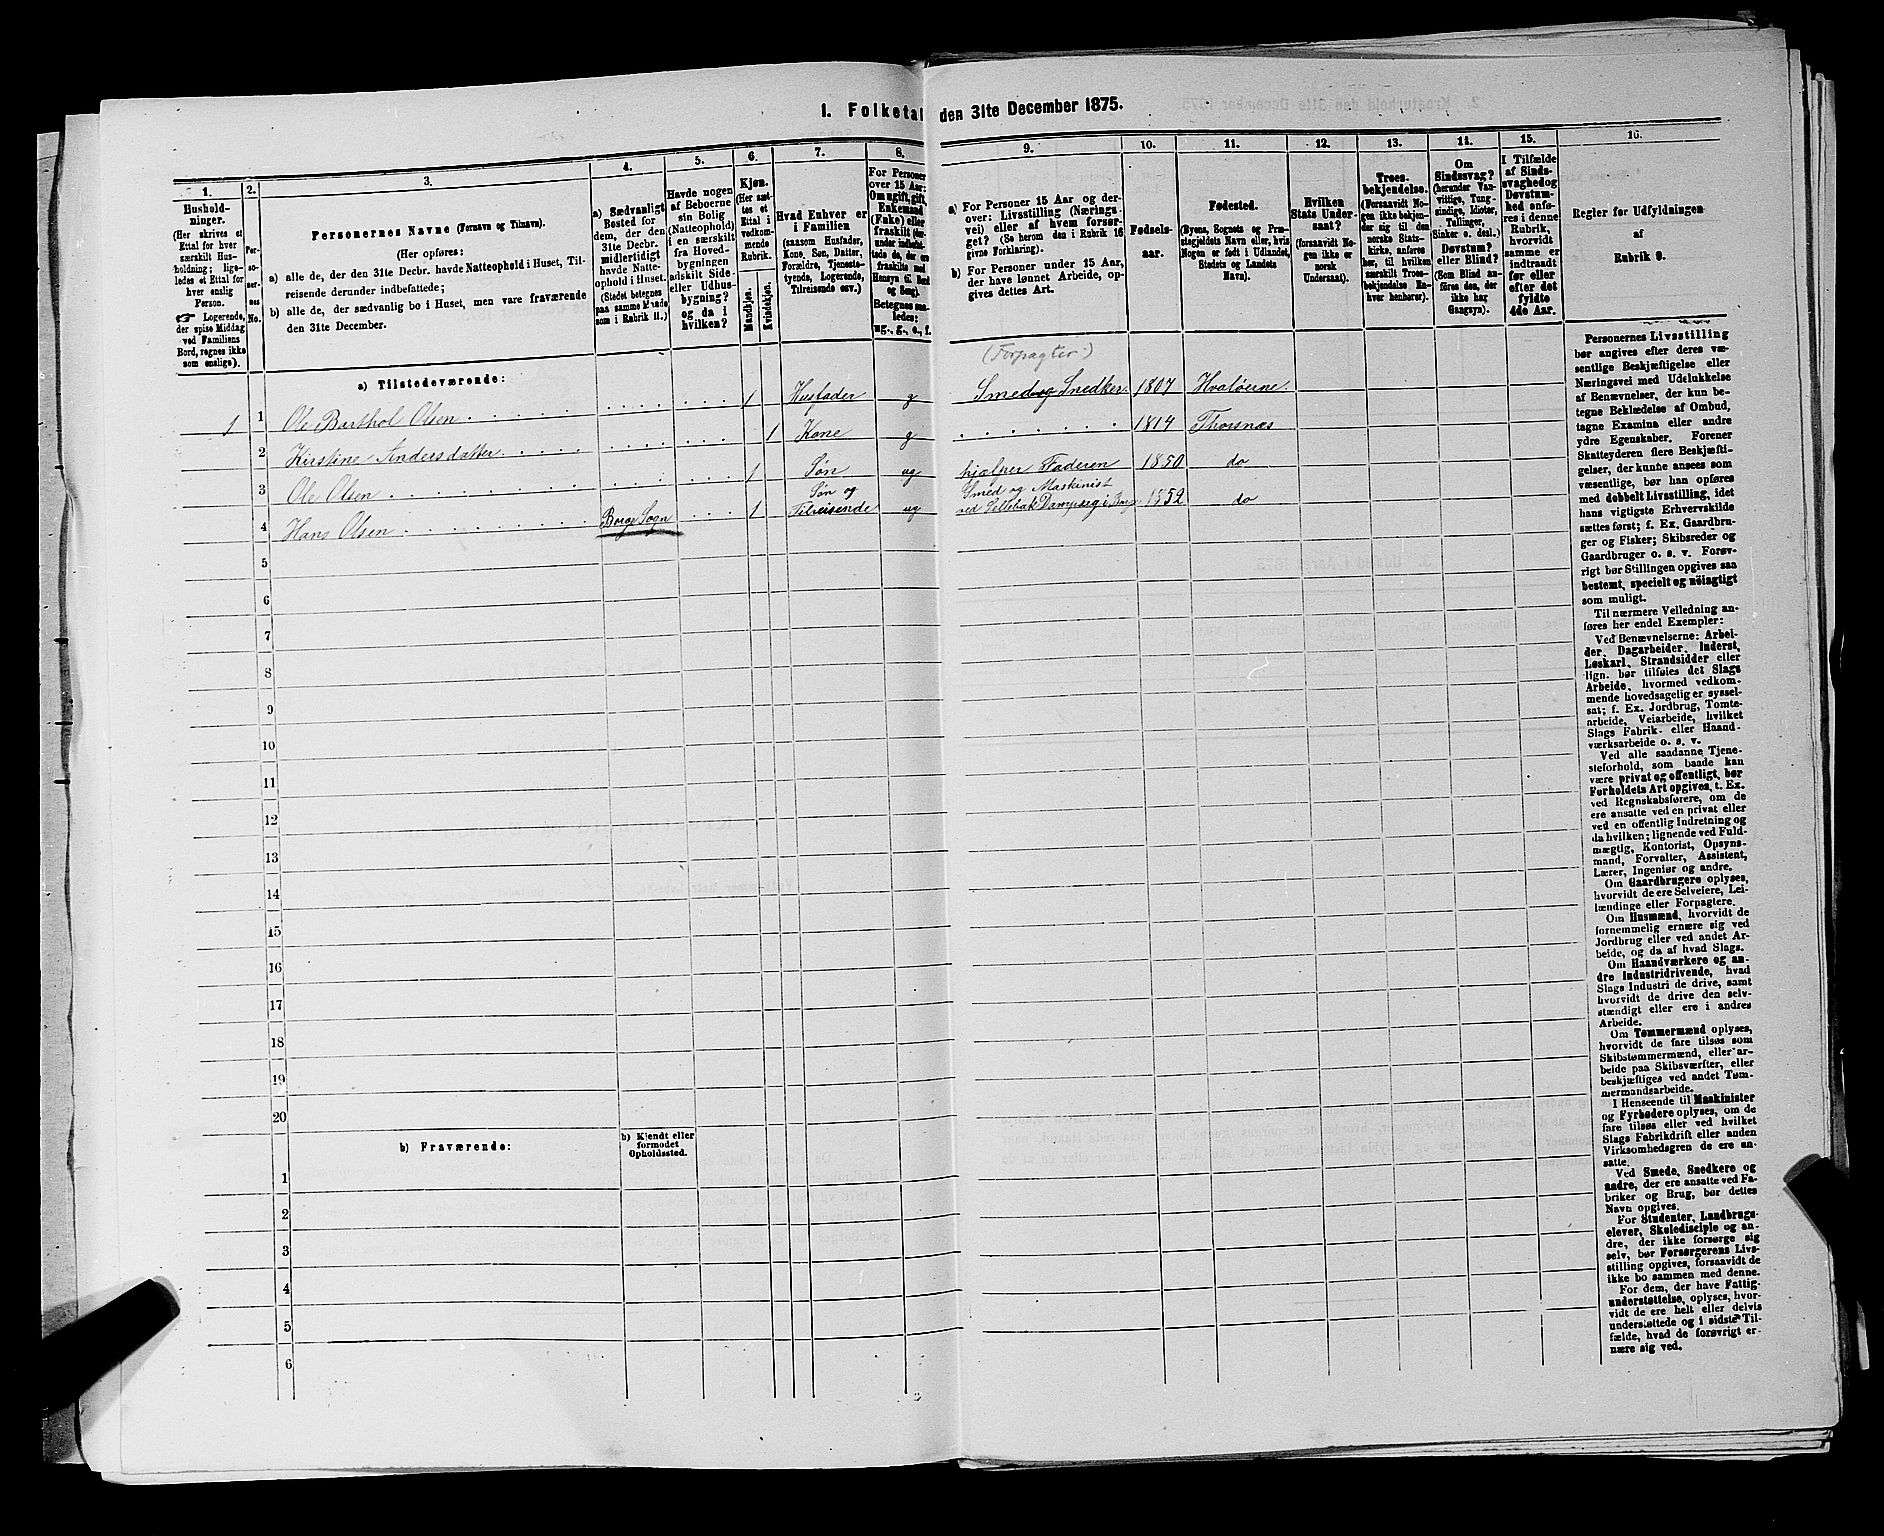 1. Folketal den 31te December 1875.
1.
2.
3.
4.
5.
6.
7.
8.
9.
10.
11.
12.
13.
14.
15.
16.
Hushold-
ninger.
(Her skrives et
Ettal for hver
særskilt Hus-
holdning; lige-
ledes et Ettal
for hver
enslig
Person.
☞ Logerende,
der spise Middag
ved Familiens
Bord, regnes ikke
som enslige).
Per-
so-
ner-
nes
No.
Personernes Navne (Fornavn og Tilnavn).
(Her opføres:
a) alle de, der den 31te Decbr. havde Natteophold i Huset, Til-
reisende derunder indbefattede;
b) alle de, der sædvanlig bo i Huset, men vare fraværende
den 31te December.
a) Sædvanligt
Bosted for
dem, der den
31te Decbr.
midlertidigt
havde Natte-
ophold i Huset.
(Stedet betegnes
paa samme Maade
som i Rubrik 11.)
Havde nogen
af Beboerne
sin Bolig
(Natteophold)
i en særskilt
fra Hoved-
bygningen
adskilt Side-
eller Udhus-
bygning?
og da i
hvilken?
Kjøn.
(Her sæt-
tes et
Ettal i
vedkom-
mende
Rubrik.
Mandkjøn.
Kvindekjøn.
Hvad Enhver er
i Familien
(saasom Husfader,
Kone, Søn, Datter,
Forældre, Tjeneste-
tyende, Logerende,
Tilreisende osv.)
For Personer
over 15 Aar:
Om ugift, gift,
Enkemand
(Enke) eller
fraskilt
Betegnes saa-
ledes:
ug., g., e., f.
a) For Personer 15 Aar og der-
over: Livsstilling (Nærings-
vei) eller af hvem forsør-
get? (Se herom den i Rubrik 16
givne Forklaring).
b) For Personer under 15 Aar,
der have lønnet Arbeide, op-
gives dettes Art.
Fødsels-
aar.
Fødested.
(Byens, Sognets og Præ-
stegjeldets Navn eller, hvis
Nogen er født i Udlandet,
Stedets og Landets
Navn).
Hvilken
Stats Under-
saat?
(forsaavidt No-
gen ikke er
norsk
Undersaat).
Troes-
bekjendelse.
(Forsaavidt No-
gen ikke bekjen-
der sig til den
norske Stats-
kirke, anføres
her, til hvilken
særskilt Troes-
bekjendelse En-
hver henhører).
Om
Sindssvag?
(herunder Van-
vittige, Tung-
sindige, Idioter,
Tullinger,
Sinker o. desl.)
Døvstum?
eller Blind?
(Som Blind an-
føres den, der
ikke har
Gangsyn).
I Tilfælde
af Sinds-
svaghed og
Døvstum-
hed anfø-
res i denne
Rubrik,
hvorvidt
samme er
indtraadt
før eller
efter det
fyldte
4de Aar.
Regler for Udfyldningen
af
Rubrik 9.
a) Tilstedeværende:
(Forpagter)
1 1 Ole Barthol Olsen 1 Husfader g Smed og Snedker 1807 Hvaløerne
2 Kirstine Andersdatter 1 Kone g 1814 Thorsnæs
3 Ole Olsen 1 Søn ug hjælper Faderen 1850 do
4 Hans Olsen Borge Sogn 1 Søn og Tilreisende ug Smed og Maskinist
ved Sellebak Dampsag i Borge 1852 do
5
6
7
8
9
10
11
12
13
14
15
16
17
18
19
20
b) Fraværende:
b) Kjendt eller
formodet
Opholdssted.
1
2
3
4
5
6
Personernes Livsstilling
bør angives efter deres væ-
sentlige Beskjæftigelse eller
Næringsvei med Udelukkelse
af Benævnelser, der kun be-
tegne Beklædelse af Ombud,
tagne Examina eller andre
ydre Egenskaber. Forener
Skatteyderen flere Beskjæfti-
gelser, der kunne ansees som
væsentlige, bør han opføres
med dobbelt Livsstilling, idet
hans vigtigste Erhvervskilde
sættes først; f. Ex. Gaardbru-
ger og Fisker; Skibsreder og
Gaardbruger o. s. v. Forøv-
rigt bør Stillingen opgives saa
bestemt, specielt og nöiagtigt
som muligt.
Til nærmere Veiledning an-
føres her endel Exempler:
Ved Benævnelserne: Arbei-
der, Dagarbeider, Inderst,
Løskarl, Strandsidder eller
lign. bør tilføies det Slags
Arbeide, hvormed vedkom-
mende hovedsagelig er syssel-
sat; f. Ex. Jordbrug, Tomte-
arbeide, Veiarbeide, hvilket
Slags Fabrik- eller Haand-
værksarbeide o. s. v.
Ved alle saadanne Tjene-
steforhold, som baade kan
være privat og offentligt, bør
Forholdets Art opgives, t. Ex.
ved Regnskabsførere, om de
ere ansatte ved en privat eller
ved en offentlig Indretning og
da hvilken; lignende ved Fuld-
mægtig, Kontorist, Opsyns-
mand, Forvalter, Assistent,
Lærer, Ingeniør og andre.
Om Gaardbrugere oplyses,
hvorvidt de ere Selveiere, Lei-
lændinge eller Forpagtere.
Om Husmænd, hvorvidt de
fornemmelig ernære sig ved
Jordbrug eller ved andet Ar-
beide, og da af hvad Slags.
Om Haandværkere og an-
dre Industridrivende, hvad
Slags Industri de drive, samt
hvorvidt de drive den selv-
stændigt eller ere i andres
Arbeide.
Om Tømmermænd oplyses,
hvorvidt de fare tilsøs som
Skibstømmermænd, eller ar-
beide paa Skibsværfter, eller
beskjæftiges ved andet Tøm-
mermandsarbeide.
I Henseende til Maskinister
og Fyrbødere oplyses, om de
fare tilsøs eller ved hvilket
Slags Fabrikdrift eller anden
Virksomhedsgren de ere an-
satte.
Ved Smede, Snedkere og
andre, der ere ansatte ved Fa-
briker og Brug, bør dettes
Navn opgives.
For Studenter, Landbrugs-
elever, Skoledisciple og an-
dre, der ikke forsørge sig
selv, bør Forsørgerens Livs-
stilling opgives, forsaavidt de
ikke bo sammen med denne.
For dem, der have Fattig-
understøttelse, oplyses, hvor-
vidt de ere helt eller delvis
understøttede og i sidste Til-
fælde, hvad de forøvrigt er-
nære sig ved.